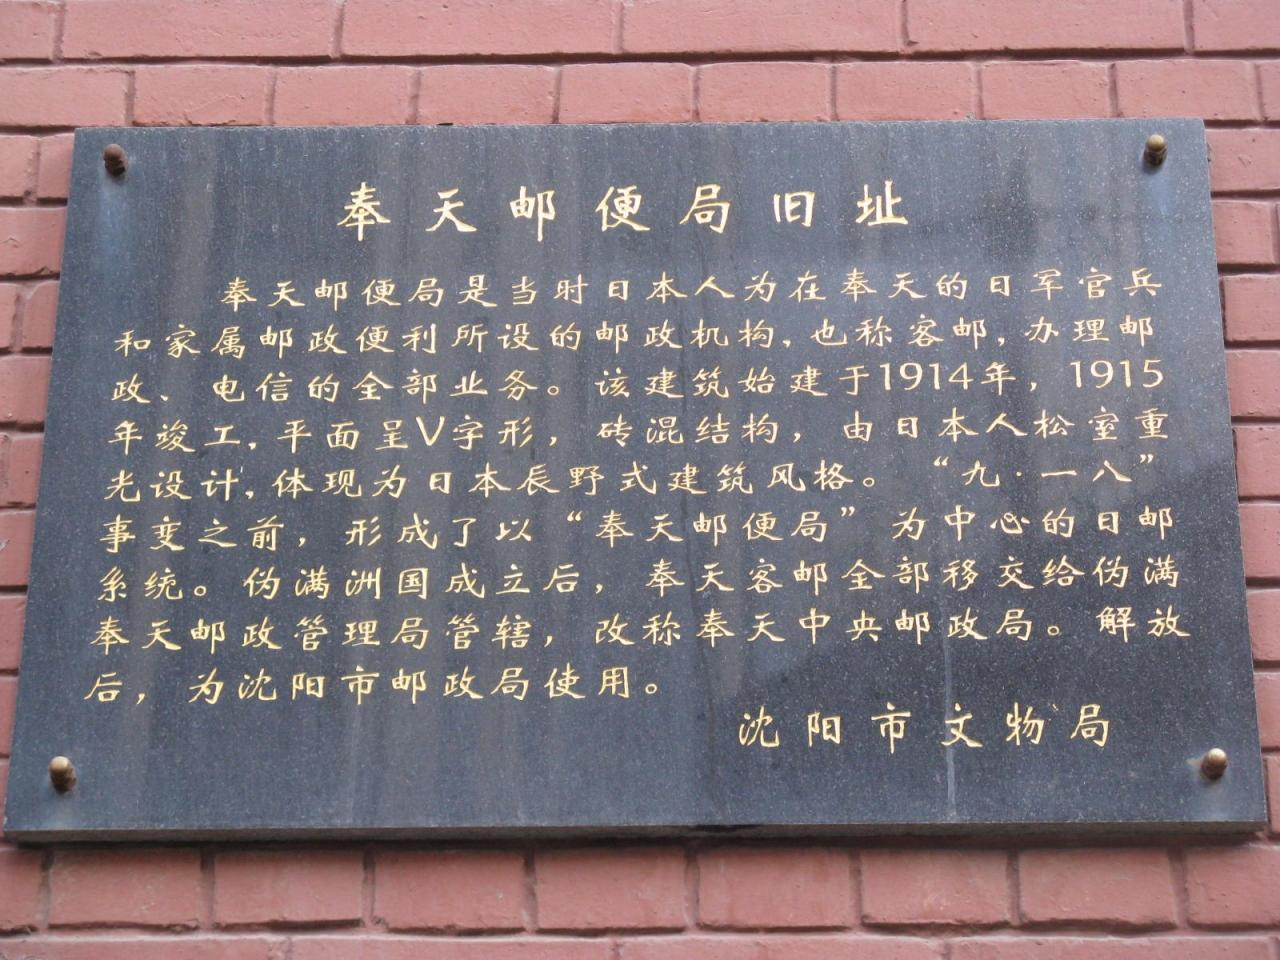 奉天邮便局旧址
奉天邮便局是当时日本人为在奉天的日军官兵
和家属邮政便利所设的邮政机构，也称客邮，办理邮
政、电信的全部业务。该建筑始建于1914年，1915
年竣工，平面呈V字形，砖混结构，由日本人松室重
光设计，体现为日本辰野式建筑风格。“九·一八”
事变之前，形成了以“奉天邮便局”为中心的日邮
系统。伪满洲国成立后，奉天客邮全部移交给伪满
奉天邮政管理局管辖，改称奉天中央邮政局。解放
后，为沈阳市邮政局使用。
沈阳市文物局